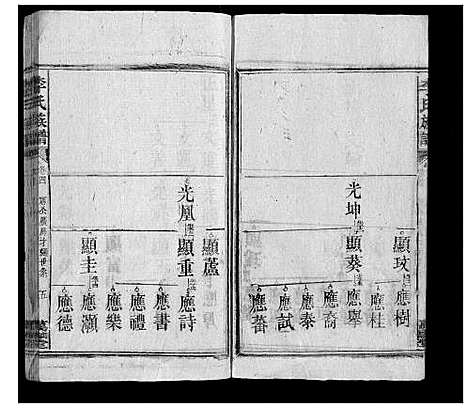 李氏族譜
光坤
顯玟
顯葵
應樹
應桂
應舉
應裔
應泰
應試
應蕃
李氏族譜
卷四
五
光凰
顯蘆
顯重
顯圭
應詩
應書
應禮
應樂
應灝
應德